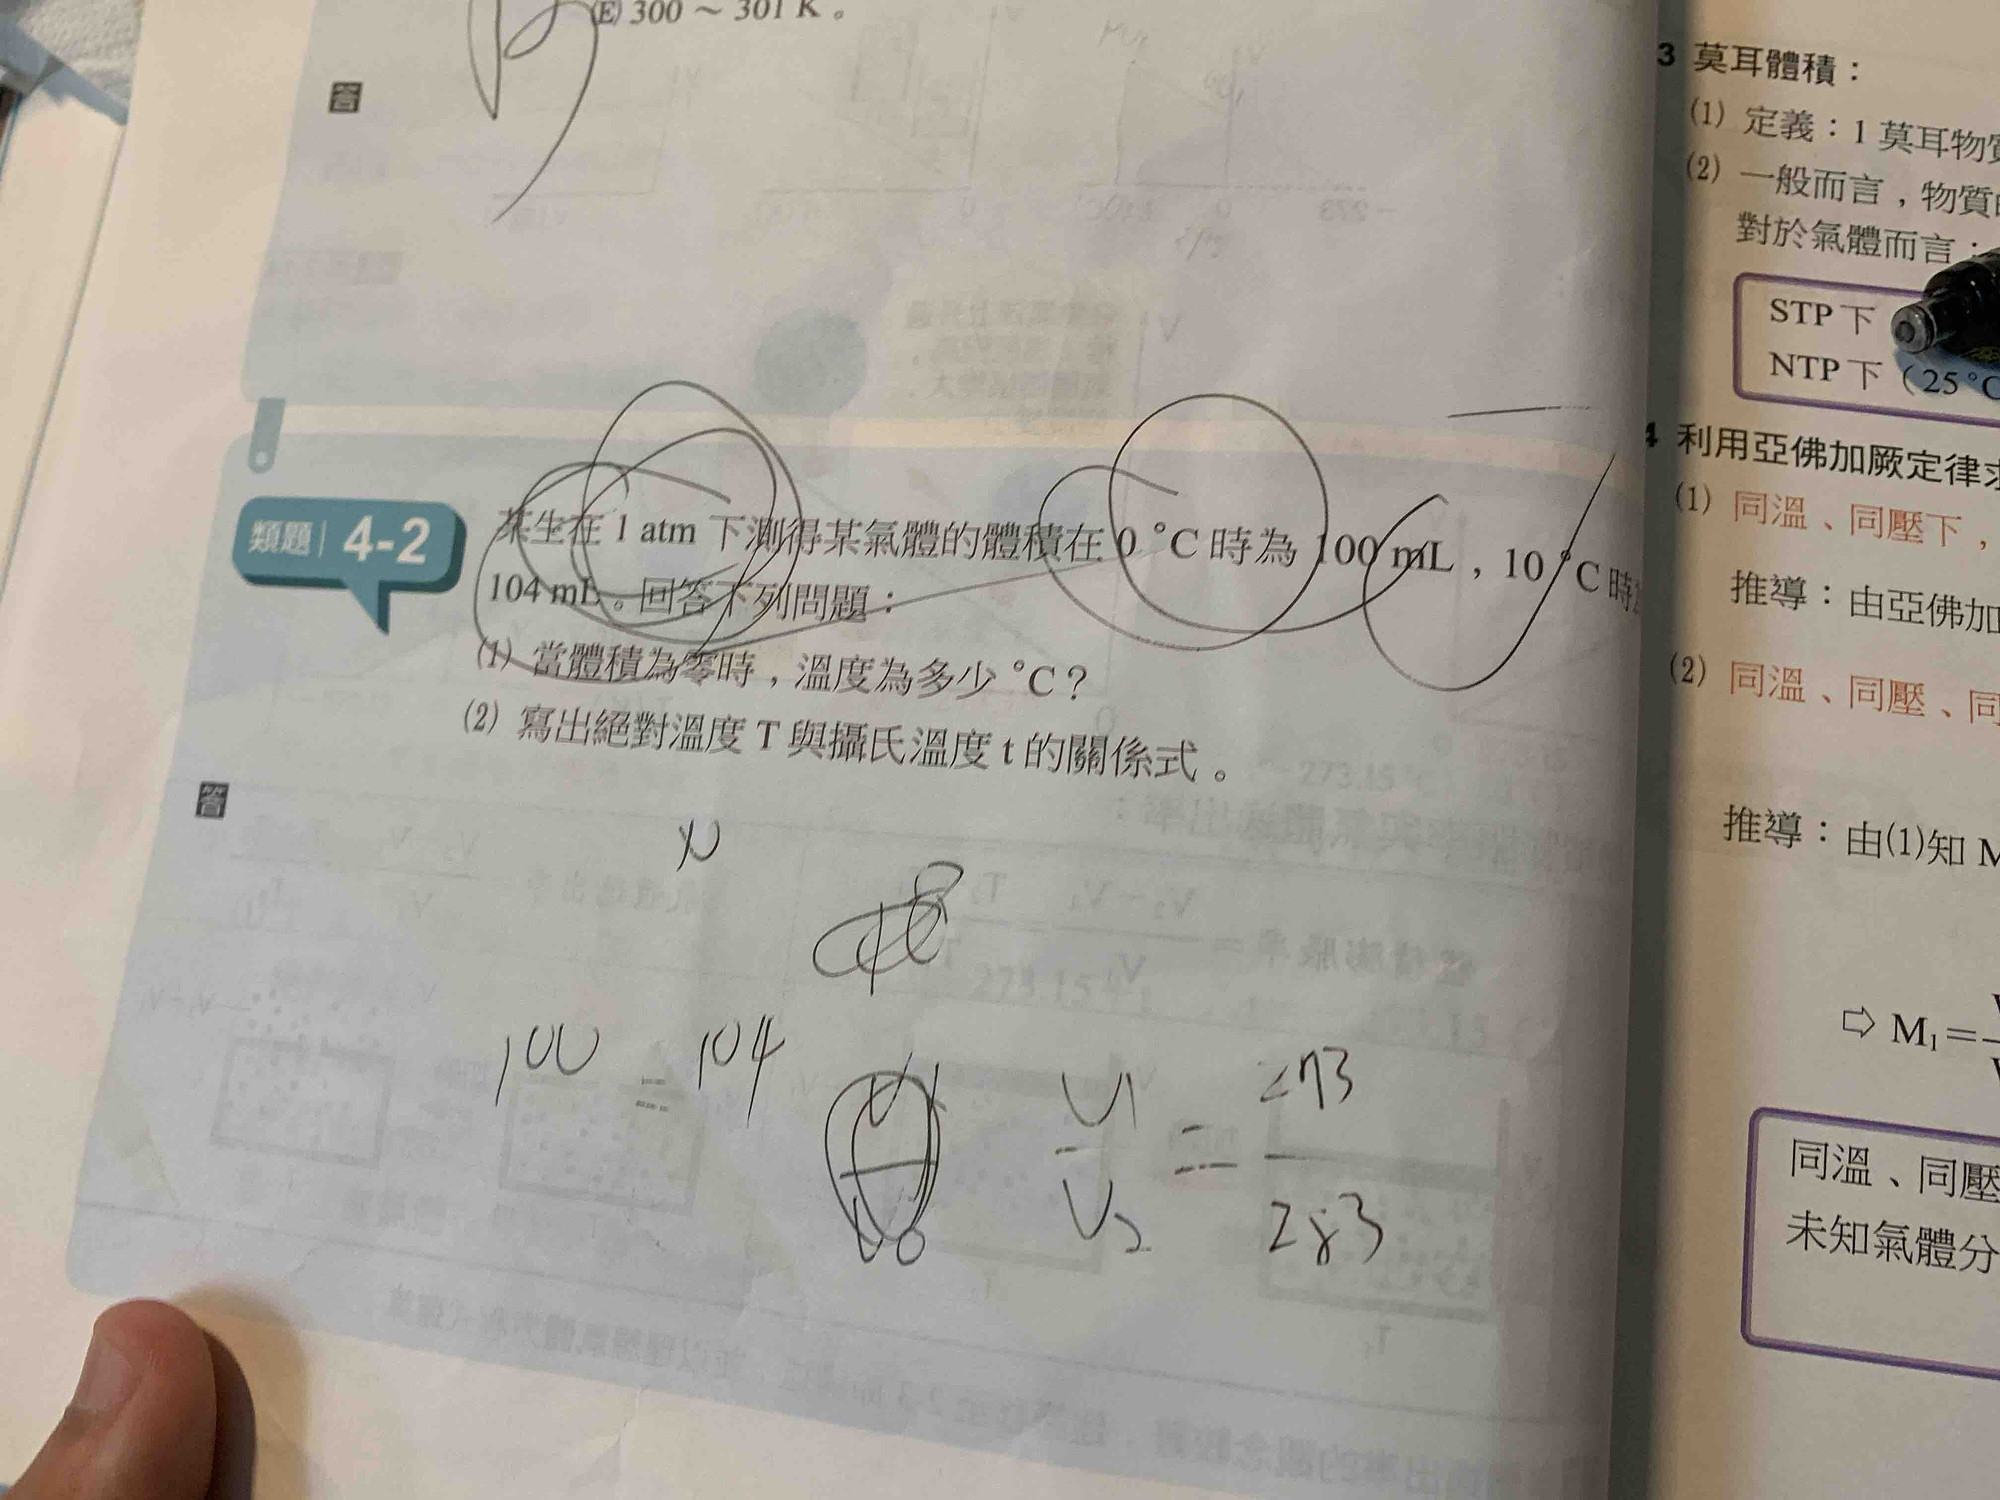 (E) 300 ～ 301 K。
答
類題 4-2
某生在 1 atm 下測得某氣體的體積在 0 °C 時為 100 mL，10 °C 時
104 mL。回答下列問題：
(1) 當體積為零時，溫度為多少 °C？
(2) 寫出絕對溫度 T 與攝氏溫度 t 的關係式。
答
100 = 104
V1
V2
=
273
283
3 莫耳體積：
(1) 定義：1 莫耳物質
(2) 一般而言，物質
對於氣體而言：
STP 下
NTP 下（25 °C
4 利用亞佛加厥定律求
(1) 同溫、同壓下，
推導：由亞佛加
(2) 同溫、同壓、同
推導：由(1)知 M
⇨ M1 =
同溫、同壓
未知氣體分